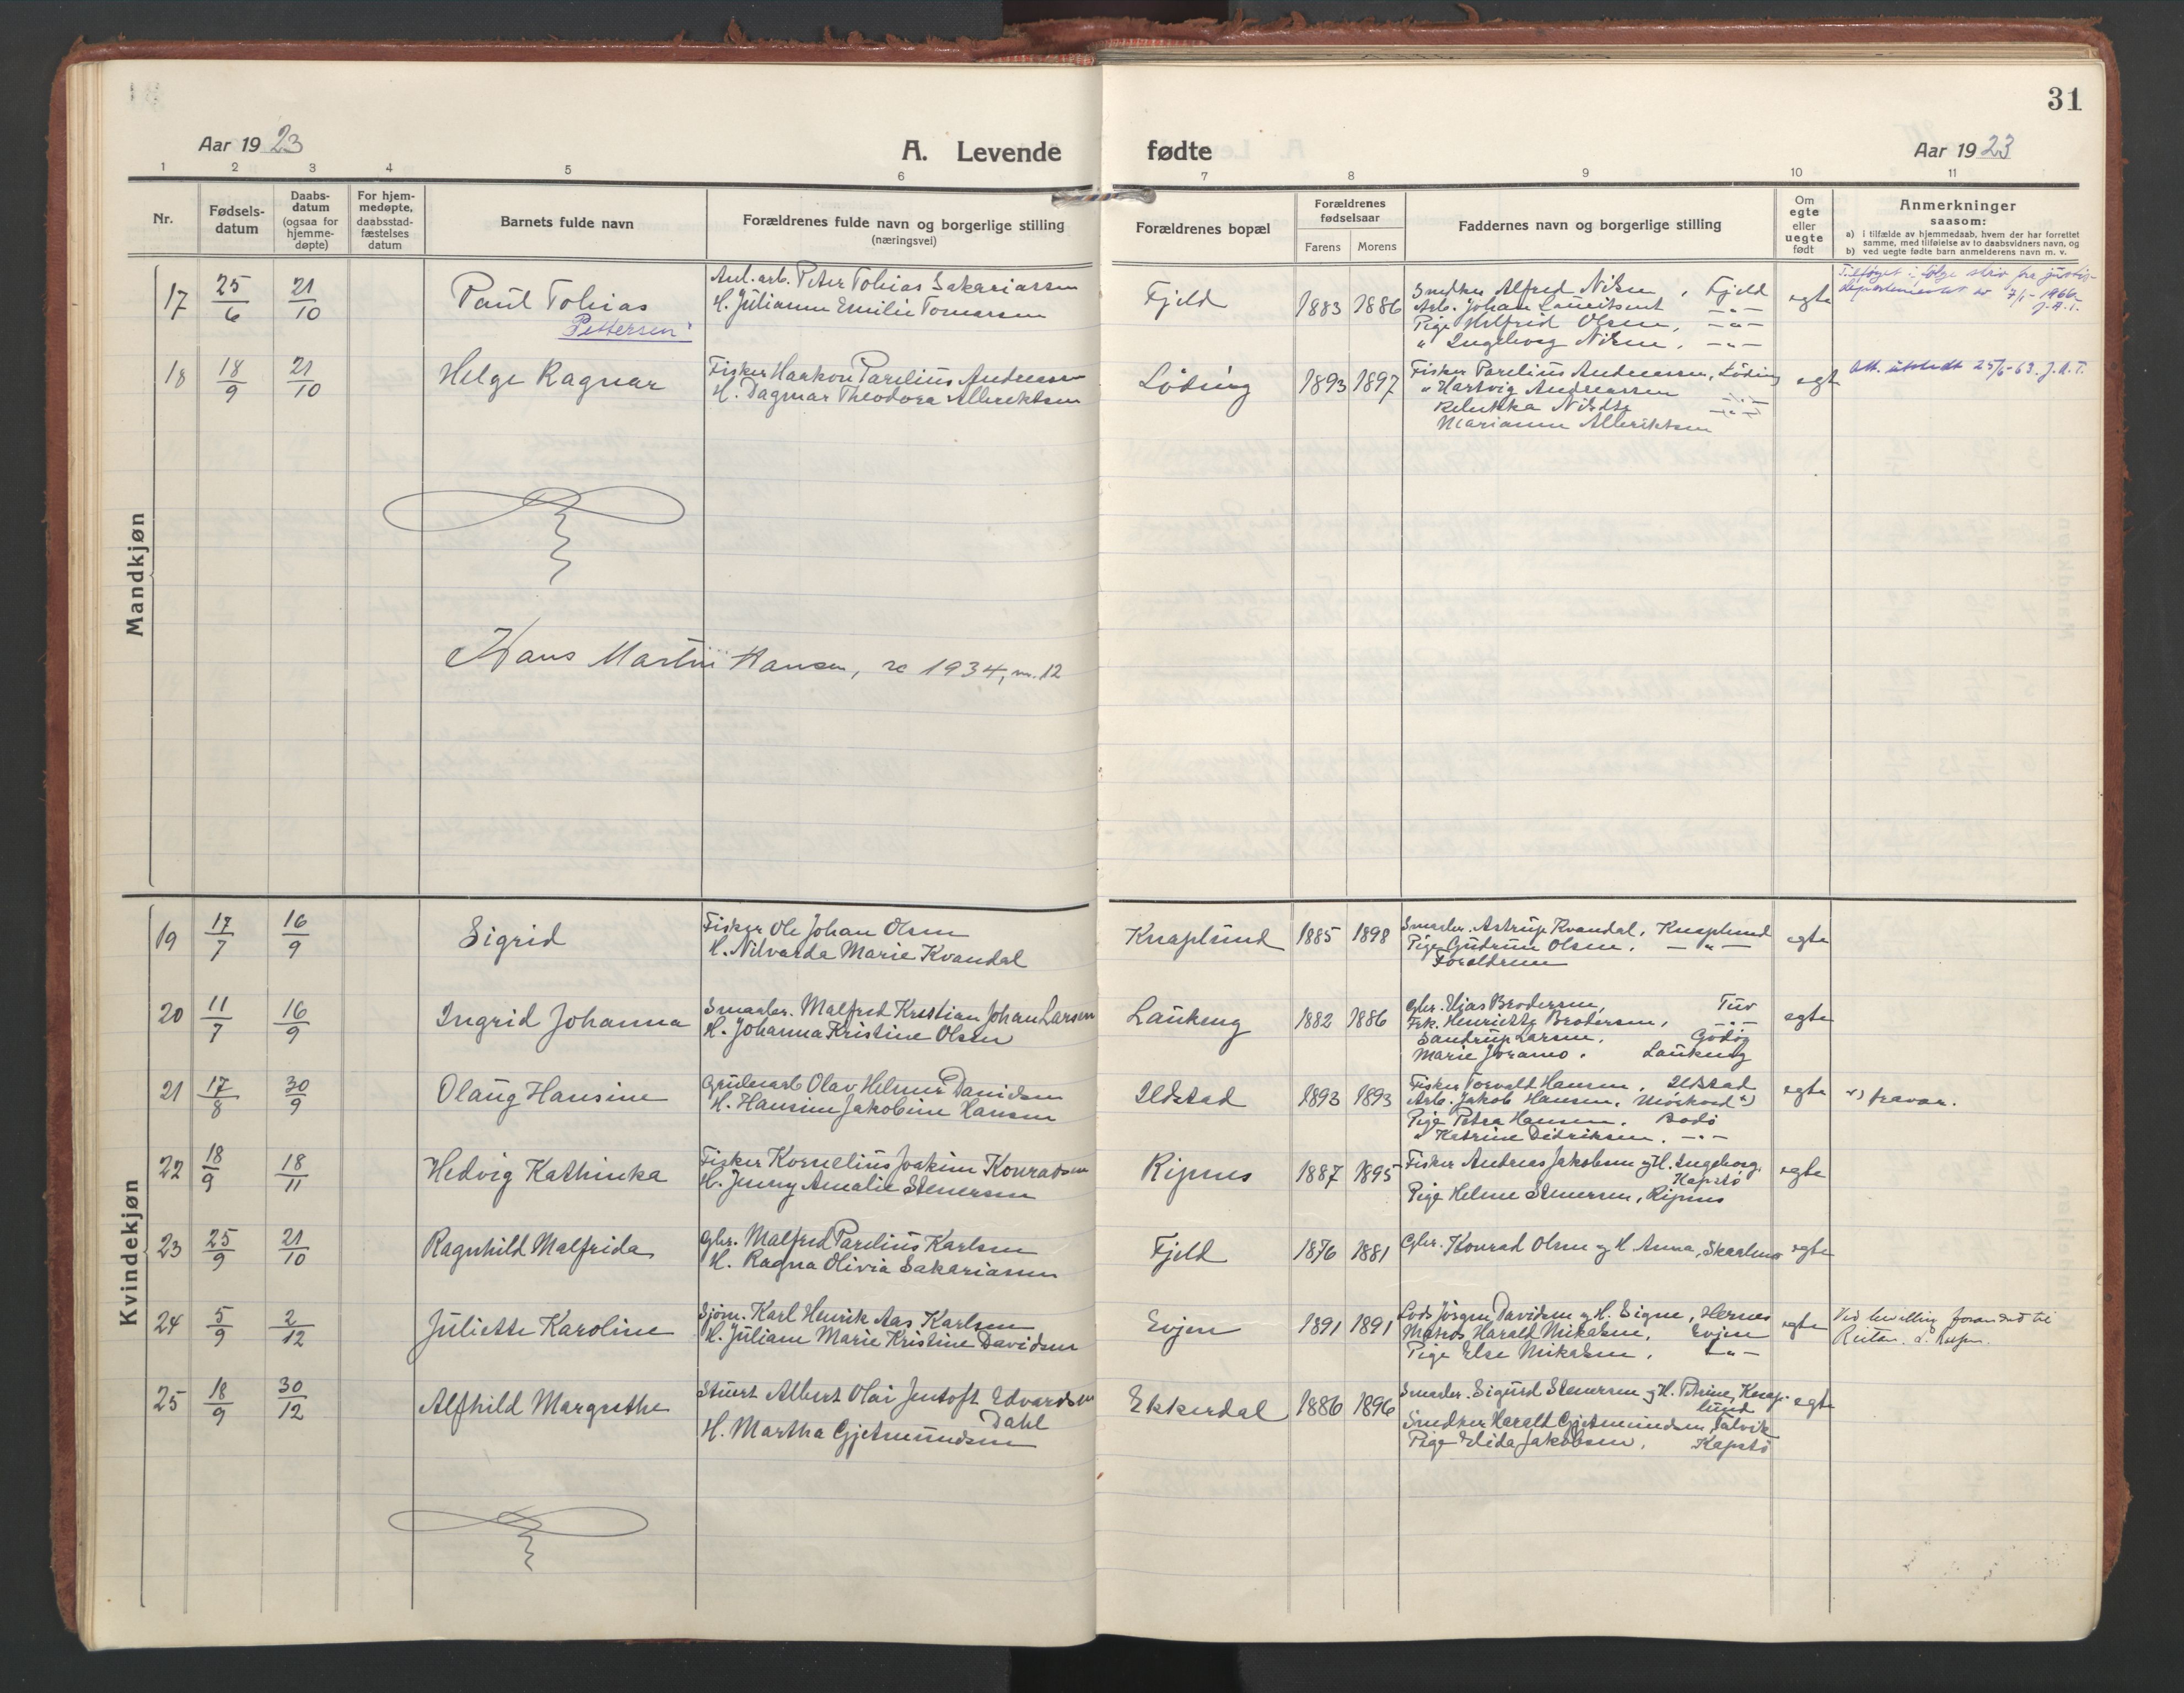 31
Aar 1923
A. Levende fødte
Aar 1923
1 2 3 4 5 6 7 8 9 10 11
Nr.
Fødsels-
datum
Daabs-
datum
(ogsaa for
hjemme-
døpte)
For hjem-
medøpte,
daabsstad-
fæstelses
datum
Barnets fulde navn
Forældrenes fulde navn og borgerlige stilling
(næringsvei)
Forældrenes bopæl
Forældrenes
fødselsaar
Farens Morens
Faddernes navn og borgerlige stilling
Om
egte
eller
uegte
født
Anmerkninger
saasom:
a) i tilfælde av hjemmedaab, hvem der har forrettet
samme, med tilføielse av to daabsvidners navn, og
b) ved uegte fødte barn anmelderens navn m. v.
Mandkjøn
17 25/6 21/10
Paul Tobias
Pettersen
Anl. arb. Peter Tobias Sakariassen
H. Julianne Emilie Tomassen
Fjeld
1883 1886
Snedker Alfred Nilsen, Fjeld
Arb. Johan Lauritsen -"-
Pige Halfrid Olsen, -"-
" Ingeborg Nilsen, -"-
egte
Tilføyet i følge skriv fra justis-
departementet av 7/1-1966
J.A.T.
18 18/9 21/10
Helge Ragnar
Fisker Haakon Parelius Andreassen
H. Dagmar Theodora Albrektsen
Løding
1893 1897
Fisker Parelius Andreassen, Løding
" Hartvig Andreassen -"-
Marianne Albriktsen
egte
Att. utstedt 25/6-63. J.A.T.
Hans Martin Hansen, se 1934, nr. 12
Kvindekjøn
19 17/7 16/9
Sigrid
Fisker Ole Johan Olsen
H. Nilvarda Marie Kvandal
Knaplund
1885 1898
Smaabr. Astrup Kvandal, Knaplund
Pige Gudrun Olsen, -"-
Forældrene
egte
20 11/7 16/9
Ingrid Johanna
Smaabr. Malfred Kristian Johan Larsen
H. Johanna Kristine Olsen
Laukeng
1882 1886
Gbr. Elias Brodersen, Tuv
Frk. Henriette Brodersen, -"-
Sandrup Larsen, Godøy
Marie Joramo, Laukeng
egte
21 17/8 30/9
Olaug Hansine
Grubearb Olav Helmer Davidsen
H. Hansine Jakobine Hansen
Ildstad
1893 1893
Fisker Torvald Hansen, Ildstad
Arb. Jakob Hansen, Mørkved x)
Pige Petra Hansen, Bodø
" Katrine Didriksen, -"-
egte
x) fravær.
22 18/9 18/11
Hedvig Kathinka
Fisker Kornelius Joakim Konradsen
H. Jenny Amalie Stenersen
Ripnes
1887 1895
Fisker Andreas Jakobsen og H. Ingeborg,
Kapstø
Pige Helene Stenersen, Ripnes
egte
23 25/9 21/10
Ragnhild Malfrida
Gbr. Malfred Parelius Karlsen
H. Ragna Olivia Sakariassen
Fjeld
1876 1881
Gbr. Konrad Olsen og H. Anna, Skaalnes
egte
24 5/9 2/12
Juliette Karoline
Sjøm. Karl Henrik Aas Karlsen
H. Juliane Marie Kristine Davidsen
Evjen
1891 1891
Lods Jørgen Davidsen og H. Signe, Hernes
Matros Harald Mikalsen, Evjen
Pige Else Mikalsen, -"-
egte
Ved bevilling forandret til
25 18/9 30/12
Alfhild Margrethe
Stuert Albert Olai Jentoft Edvardsen
Dahl
H. Martha Gjetmundsen
Ekkerdal
1886 1896
Smaabr. Sigurd Stenersen og H. Petrine, Knap-
lund
Snedker Harald Gjetmundsen, Talvik
Pige Elida Jakobsen, Kapstø
egte